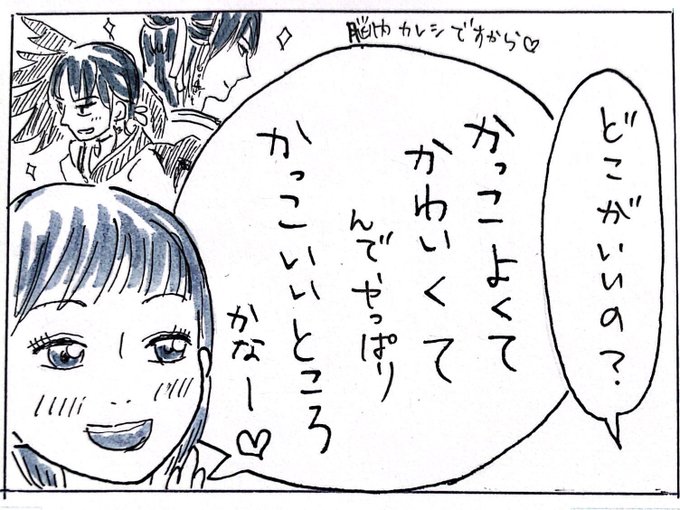 どこがいいの？
脳内カレシですから♡
かっこよくて
かわいくて
んでやっぱり
かっこいいところ
かなー♡